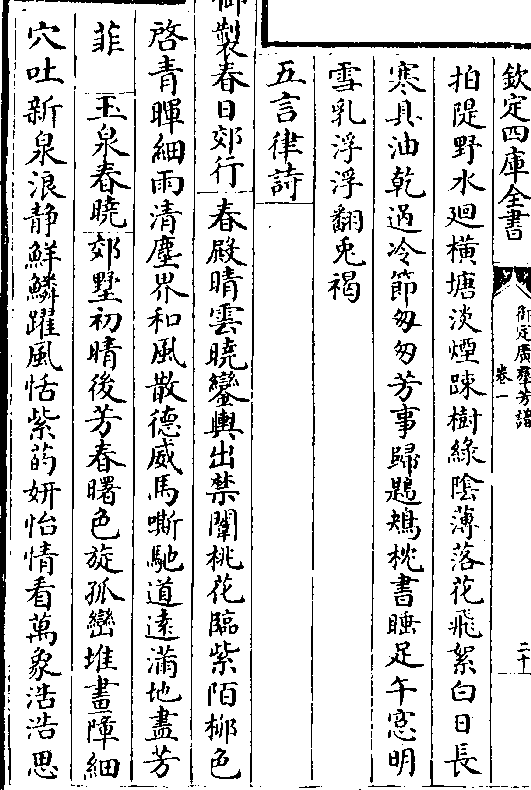 欽定四庫全書
御定廣羣芳譜
卷一
二十
拍隄野水迴橫塘淡煙踈樹綠陰薄落花飛絮白日長
寒具油乾過冷節匆匆芳事歸鶗鴂枕書睡足午窻明
雪乳浮浮翻兎褐
五言律詩
御製春日郊行春殿晴雲曉鑾輿出禁闈桃花臨紫陌柳色
啓青暉細雨清塵界和風散德威馬嘶馳道遠滿地盡芳
菲 玉泉春曉郊墅初晴後芳春曙色旋孤巒堆畫障細
穴吐新泉浪静鮮鱗躍風恬紫菂妍怡情看萬象浩浩思